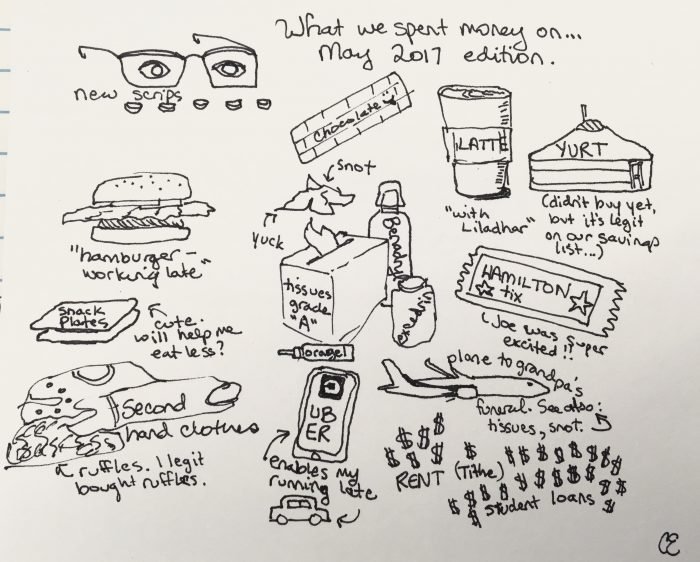 What we spent money on...
May 2017 edition.
new scrips
Chocolate
LATTE
"with
Liladhar"
YURT
(didn't buy yet,
but it's legit
on our savings
list...)
snot
yuck
Benadryl
"hamburger -
working late"
tissues
grade
"A"
HAMILTON
tix
(Joe was super
excited!!
snack
plates
cute.
will help me
eat less?
oragel
plane to grandpa's
funeral. See also:
tissues, snot.
second
hand clothes
ruffles. I legit
bought ruffles.
UB
ER
enables my
running late
$ $ $ $ $ $ $ $ $
RENT (Tithe)
student loans
CE